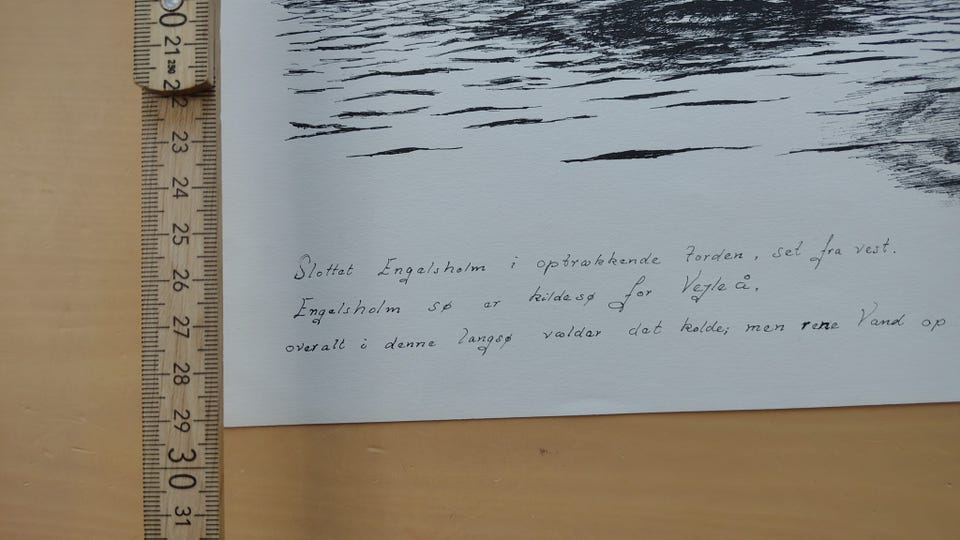 0
21
250
22
23
24
25
26
27
28
29
30
31
Slottet Engelsholm i optrækkende Torden, set fra vest.
Engelsholm sø er kildesø for Vejle å,
overalt i denne langsø vælder det kolde; men rene Vand op